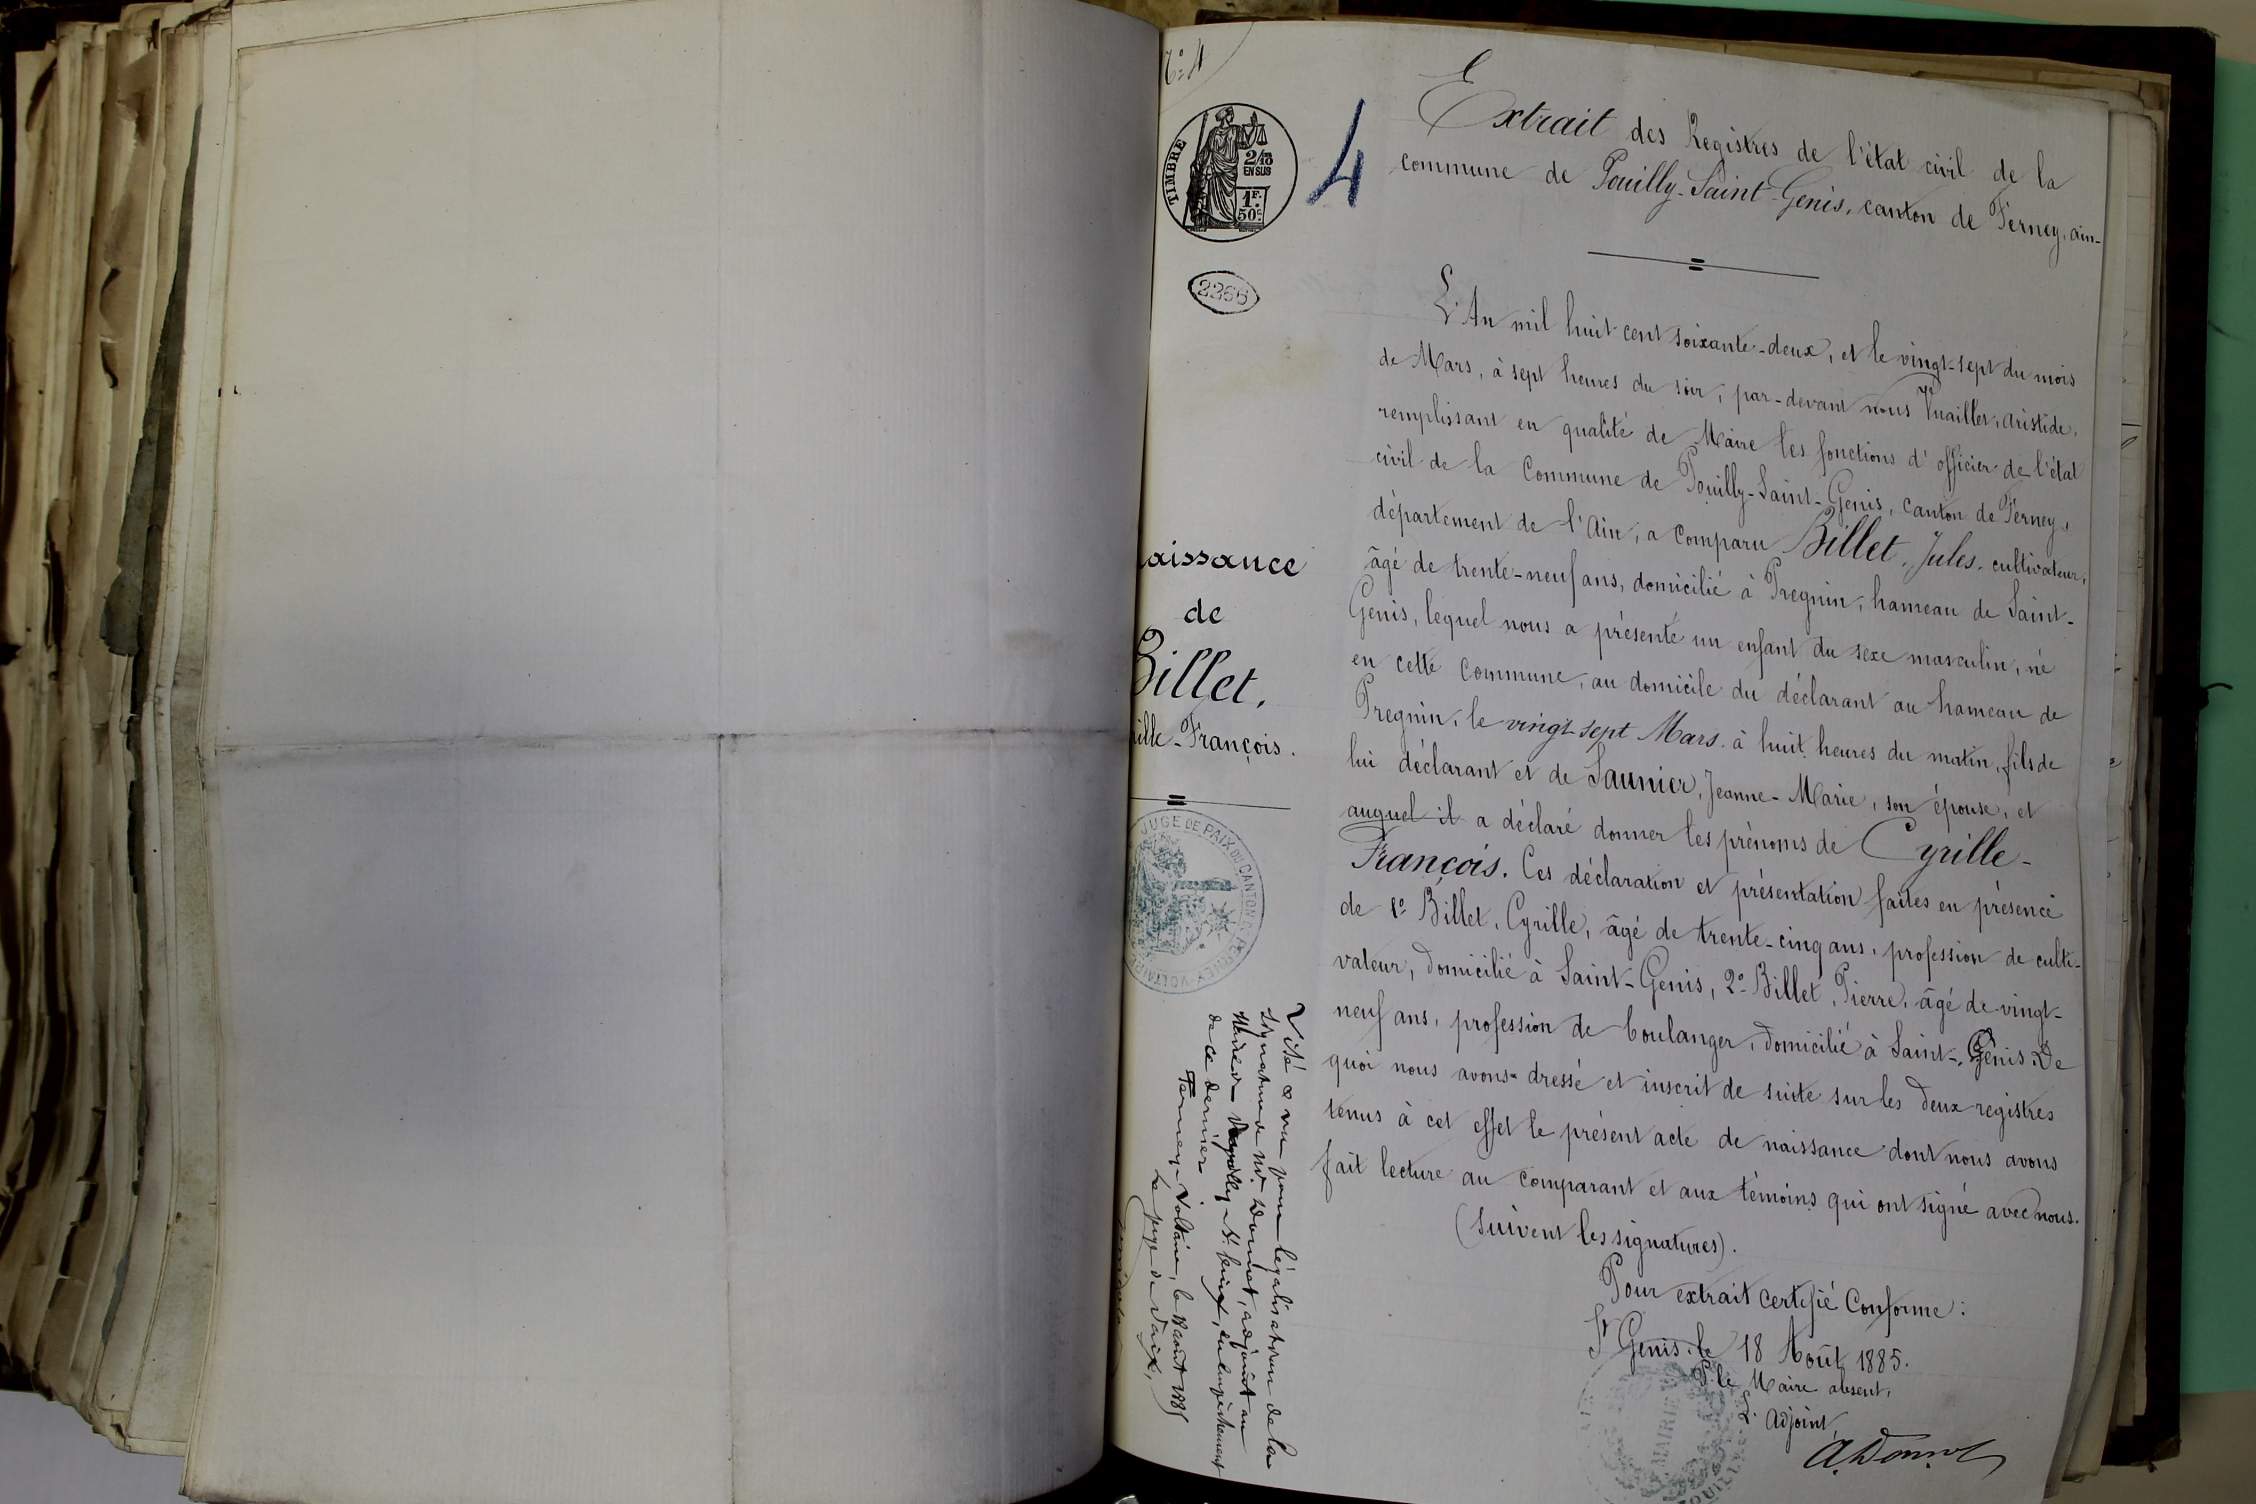 TIMBRE
2/10
EN SUS
1F.
50c.
4
2266
Extrait des Registres de l'état civil de la
commune de Pouilly-Saint-Genis, canton de Ferney, ain-
L'An mil huit cent soixante-deux, et le vingt-sept du mois
de Mars, à sept heures du soir, par-devant nous Vuaillet, aristide,
remplissant en qualité de Maire les fonctions d'officier de l'état
civil de la Commune de Pouilly-Saint-Genis, canton de Ferney,
département de l'Ain, a comparu Billet, Jules, cultivateur,
âgé de trente-neuf ans, domicilié à Pregnin, hameau de Saint-
Genis, lequel nous a présenté un enfant du sexe masculin, né
en cette Commune, au domicile du déclarant au hameau de
Pregnin, le vingt-sept Mars à huit heures du matin, fils de
lui déclarant et de Saunier, Jeanne-Marie, son épouse, et
auquel il a déclaré donner les prénoms de Cyrille-
François. Ces déclaration et présentation faites en présence
de 1º Billet, Cyrille, âgé de trente-cinq ans, profession de culti-
vateur, domicilié à Saint-Genis, 2º Billet, Pierre, âgé de vingt-
neuf ans, profession de boulanger, domicilié à Saint-Genis. De
quoi nous avons dressé et inscrit de suite sur les deux registres
tenus à cet effet le présent acte de naissance dont nous avons
fait lecture au comparant et aux témoins qui ont signé avec nous.
(Suivent les signatures).
Pour extrait certifié Conforme:
St Genis, le 18 Août 1885.
P. le Maire absent,
L'adjoint,
A. Donnet
aissance
de
Billet,
ille-François.
JUGE DE PAIX DU CANTON DE FERNEY-VOLTAIRE
Visé & vu pour légalisation de la
signature de Mr Donnet, adjoint au
Maire de Pouilly-St Genis, en empêchement
de ce dernier.
Ferney-Voltaire, le 18 août 1885
Le juge de Paix,
MAIRIE